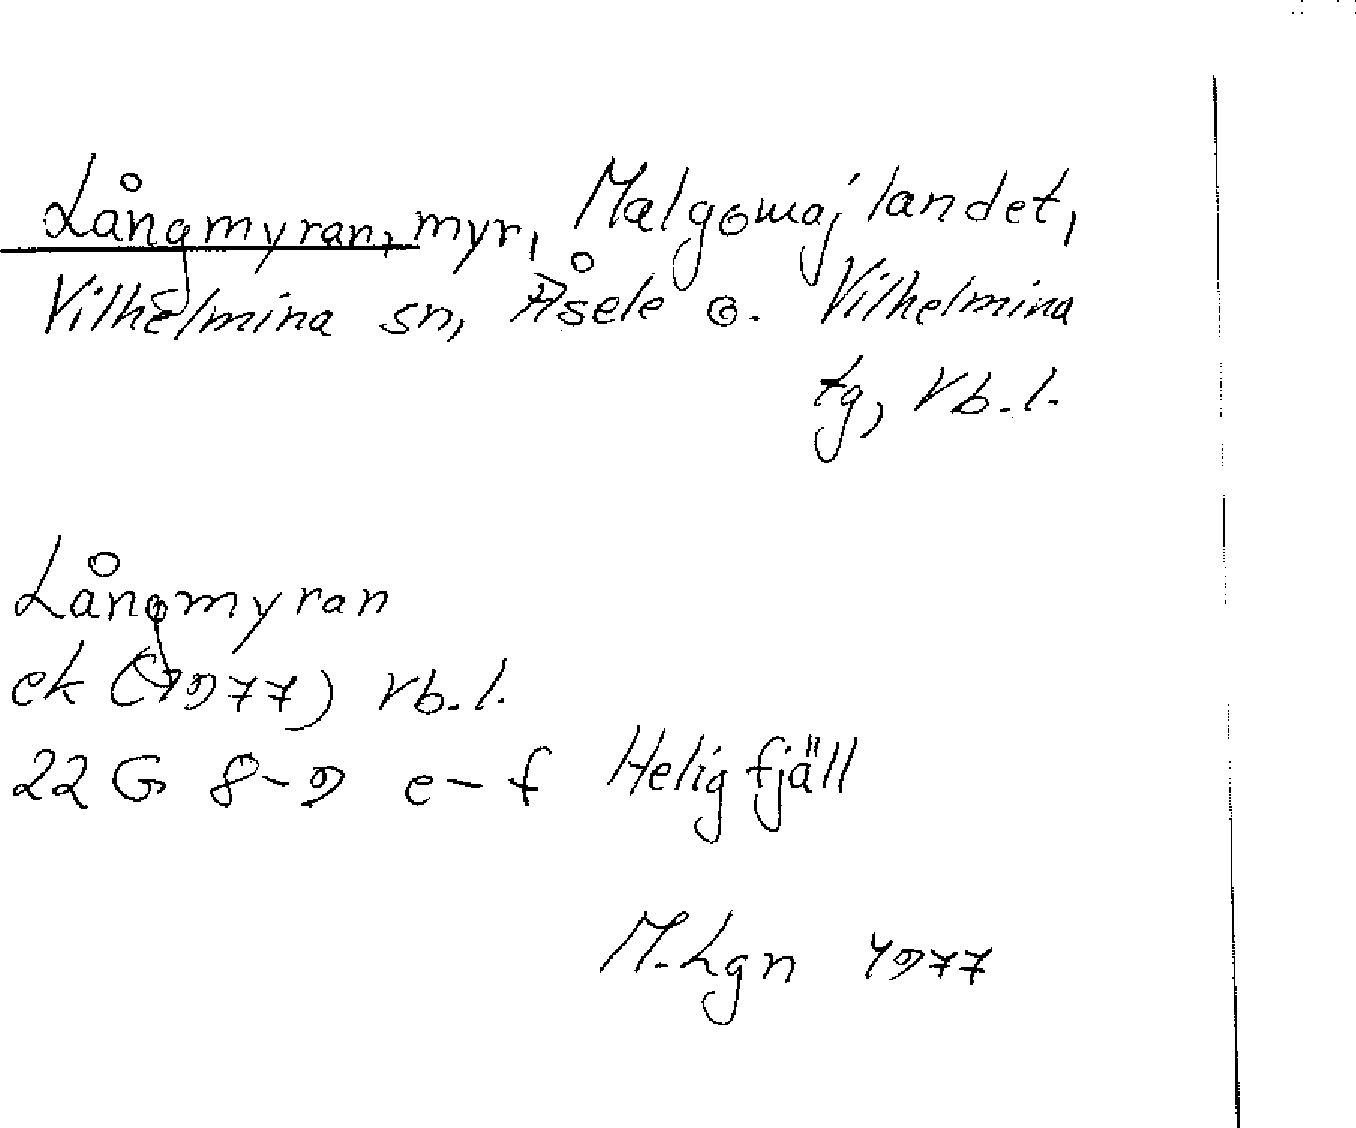 Långmyran, myr, Malgomajlandet,
Vilhelmina sn, Åsele o. Vilhelmina
tg, Vb.l.
Långmyran
ek (1977) Vb.l.
22 G 8-9 e-f Heligfjäll
M. Lgn 1977